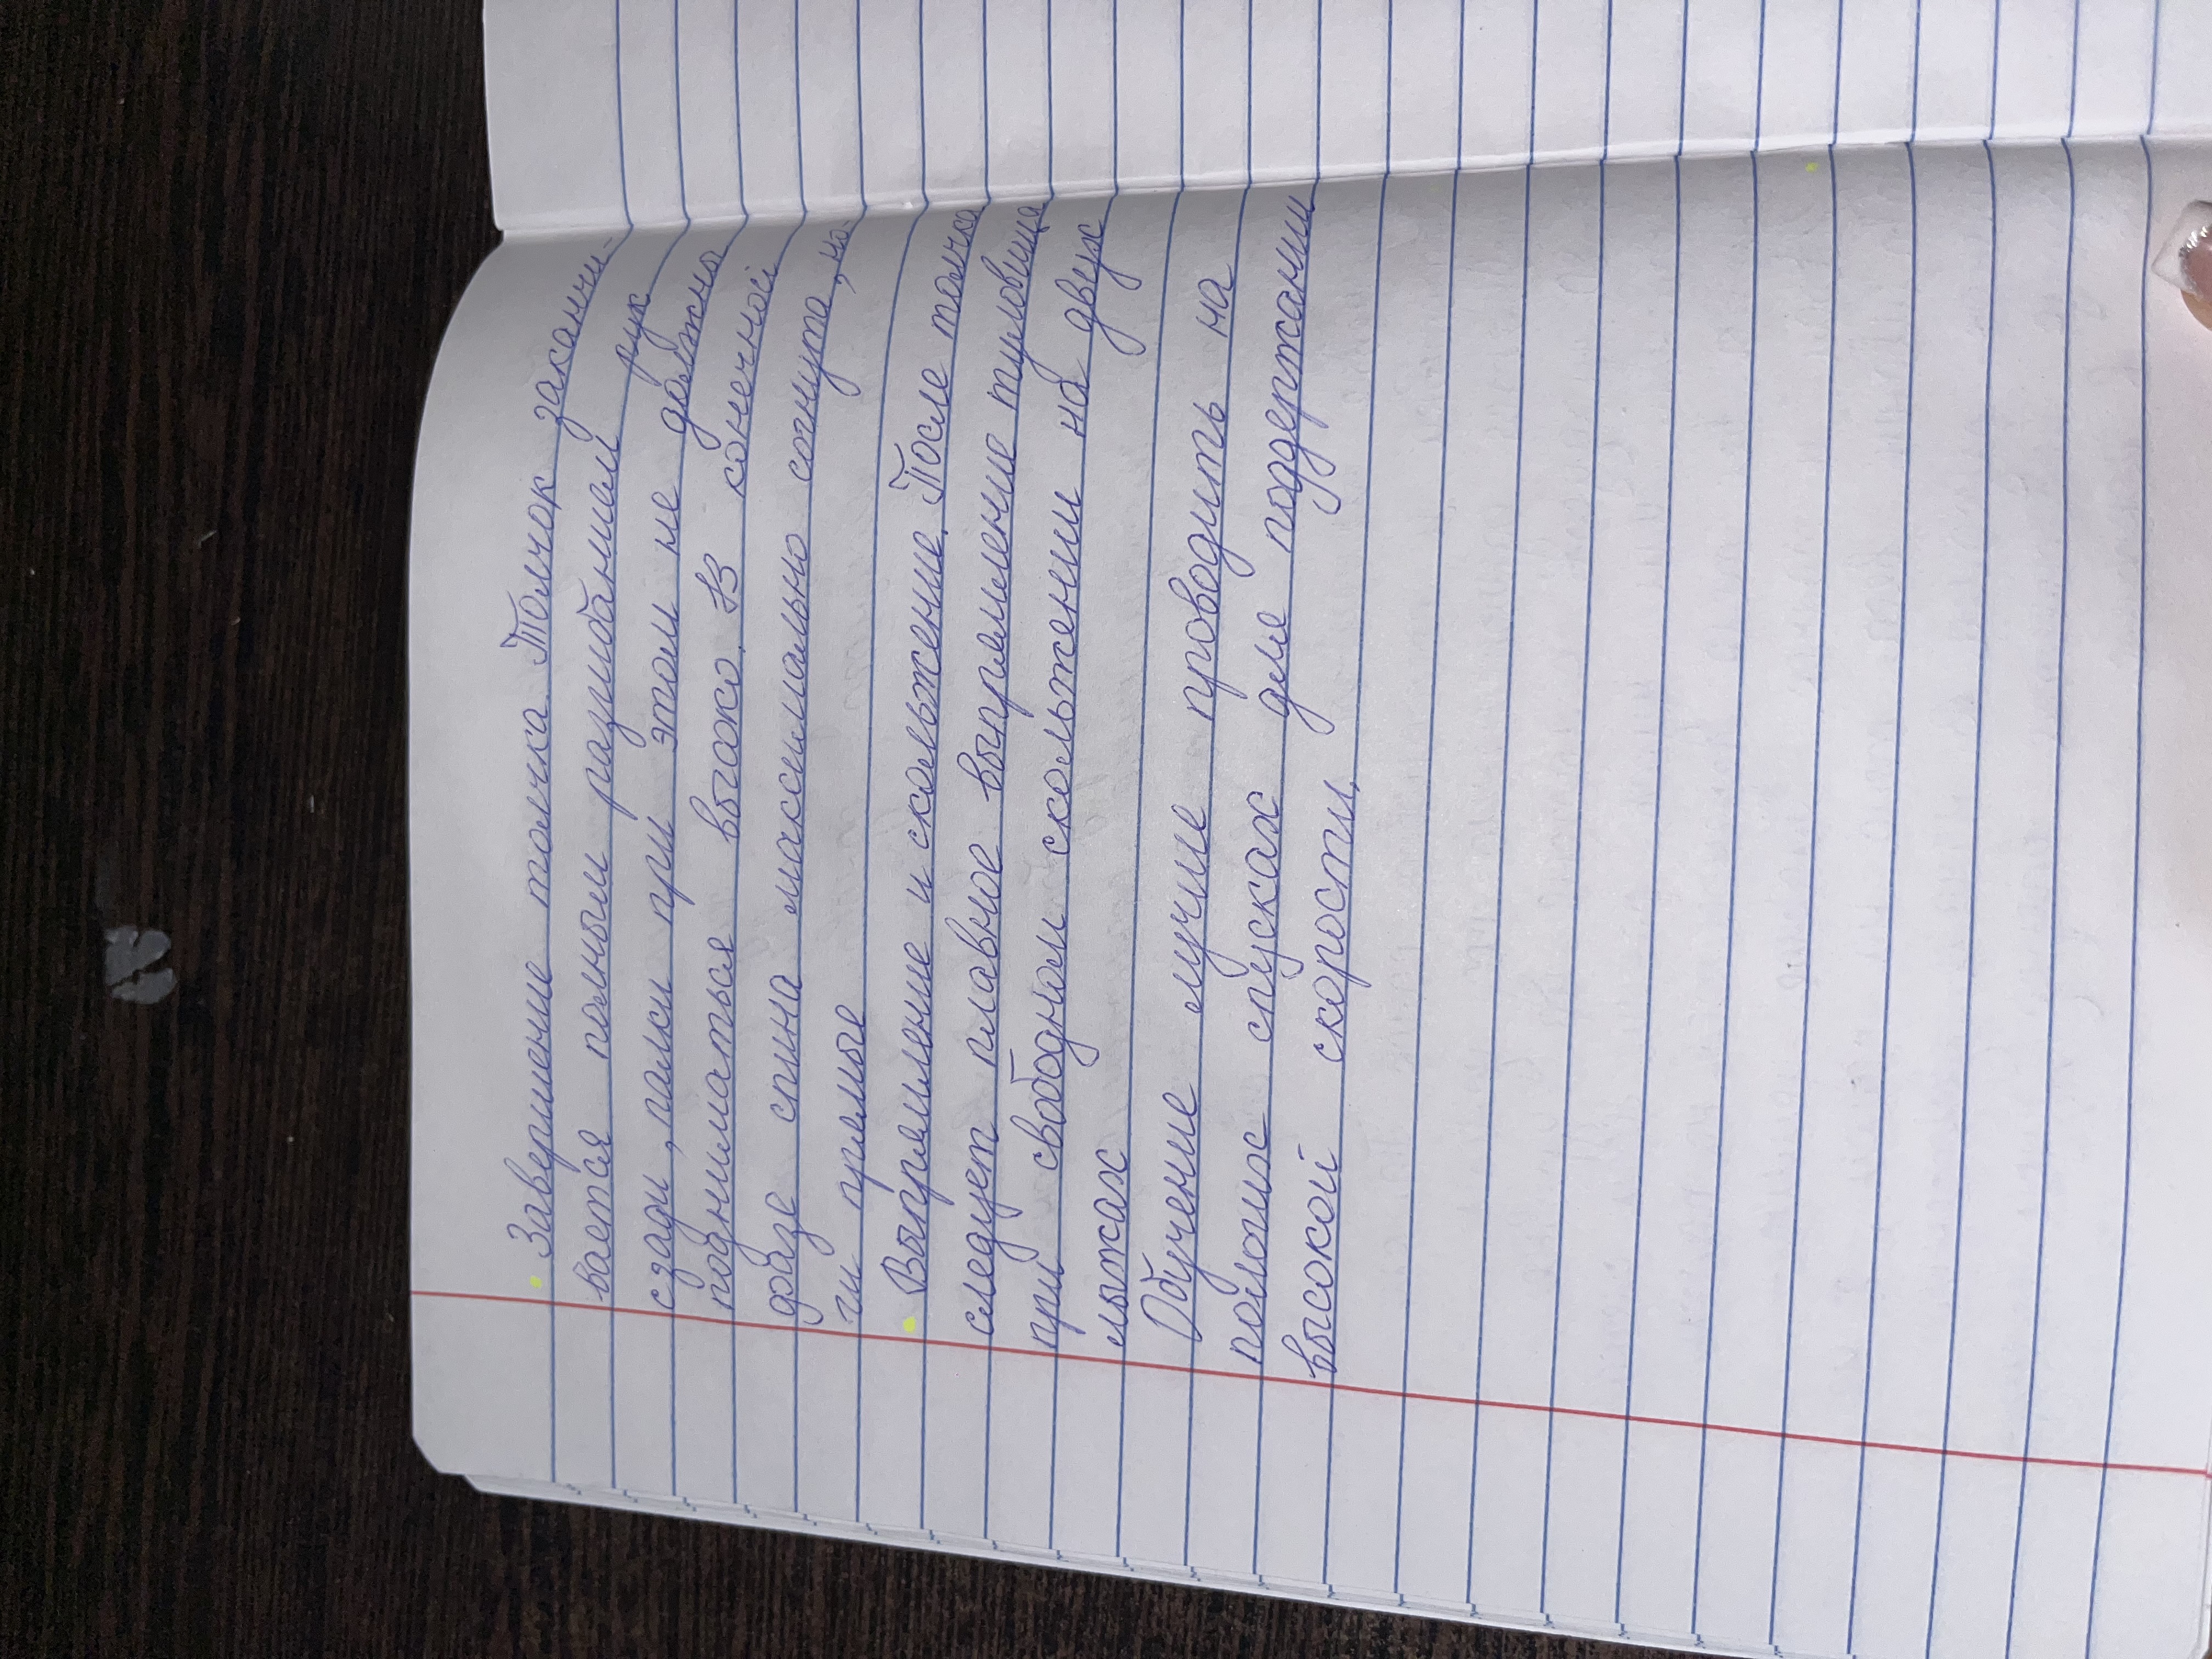 Завершение толчка. Толчок заканчи-
вается полным разгибанием рук
сзади, палки при этом не должны
подниматься высоко. В конечной
фазе спина максимально согнута, но-
ги прямые
Выпрямление и скольжение. После толчка
следует плавное выпрямление туловища
при свободном скольжении на двух
лыжах
Обучение лучше проводить на
пологих спусках для поддержания
высокой скорости.